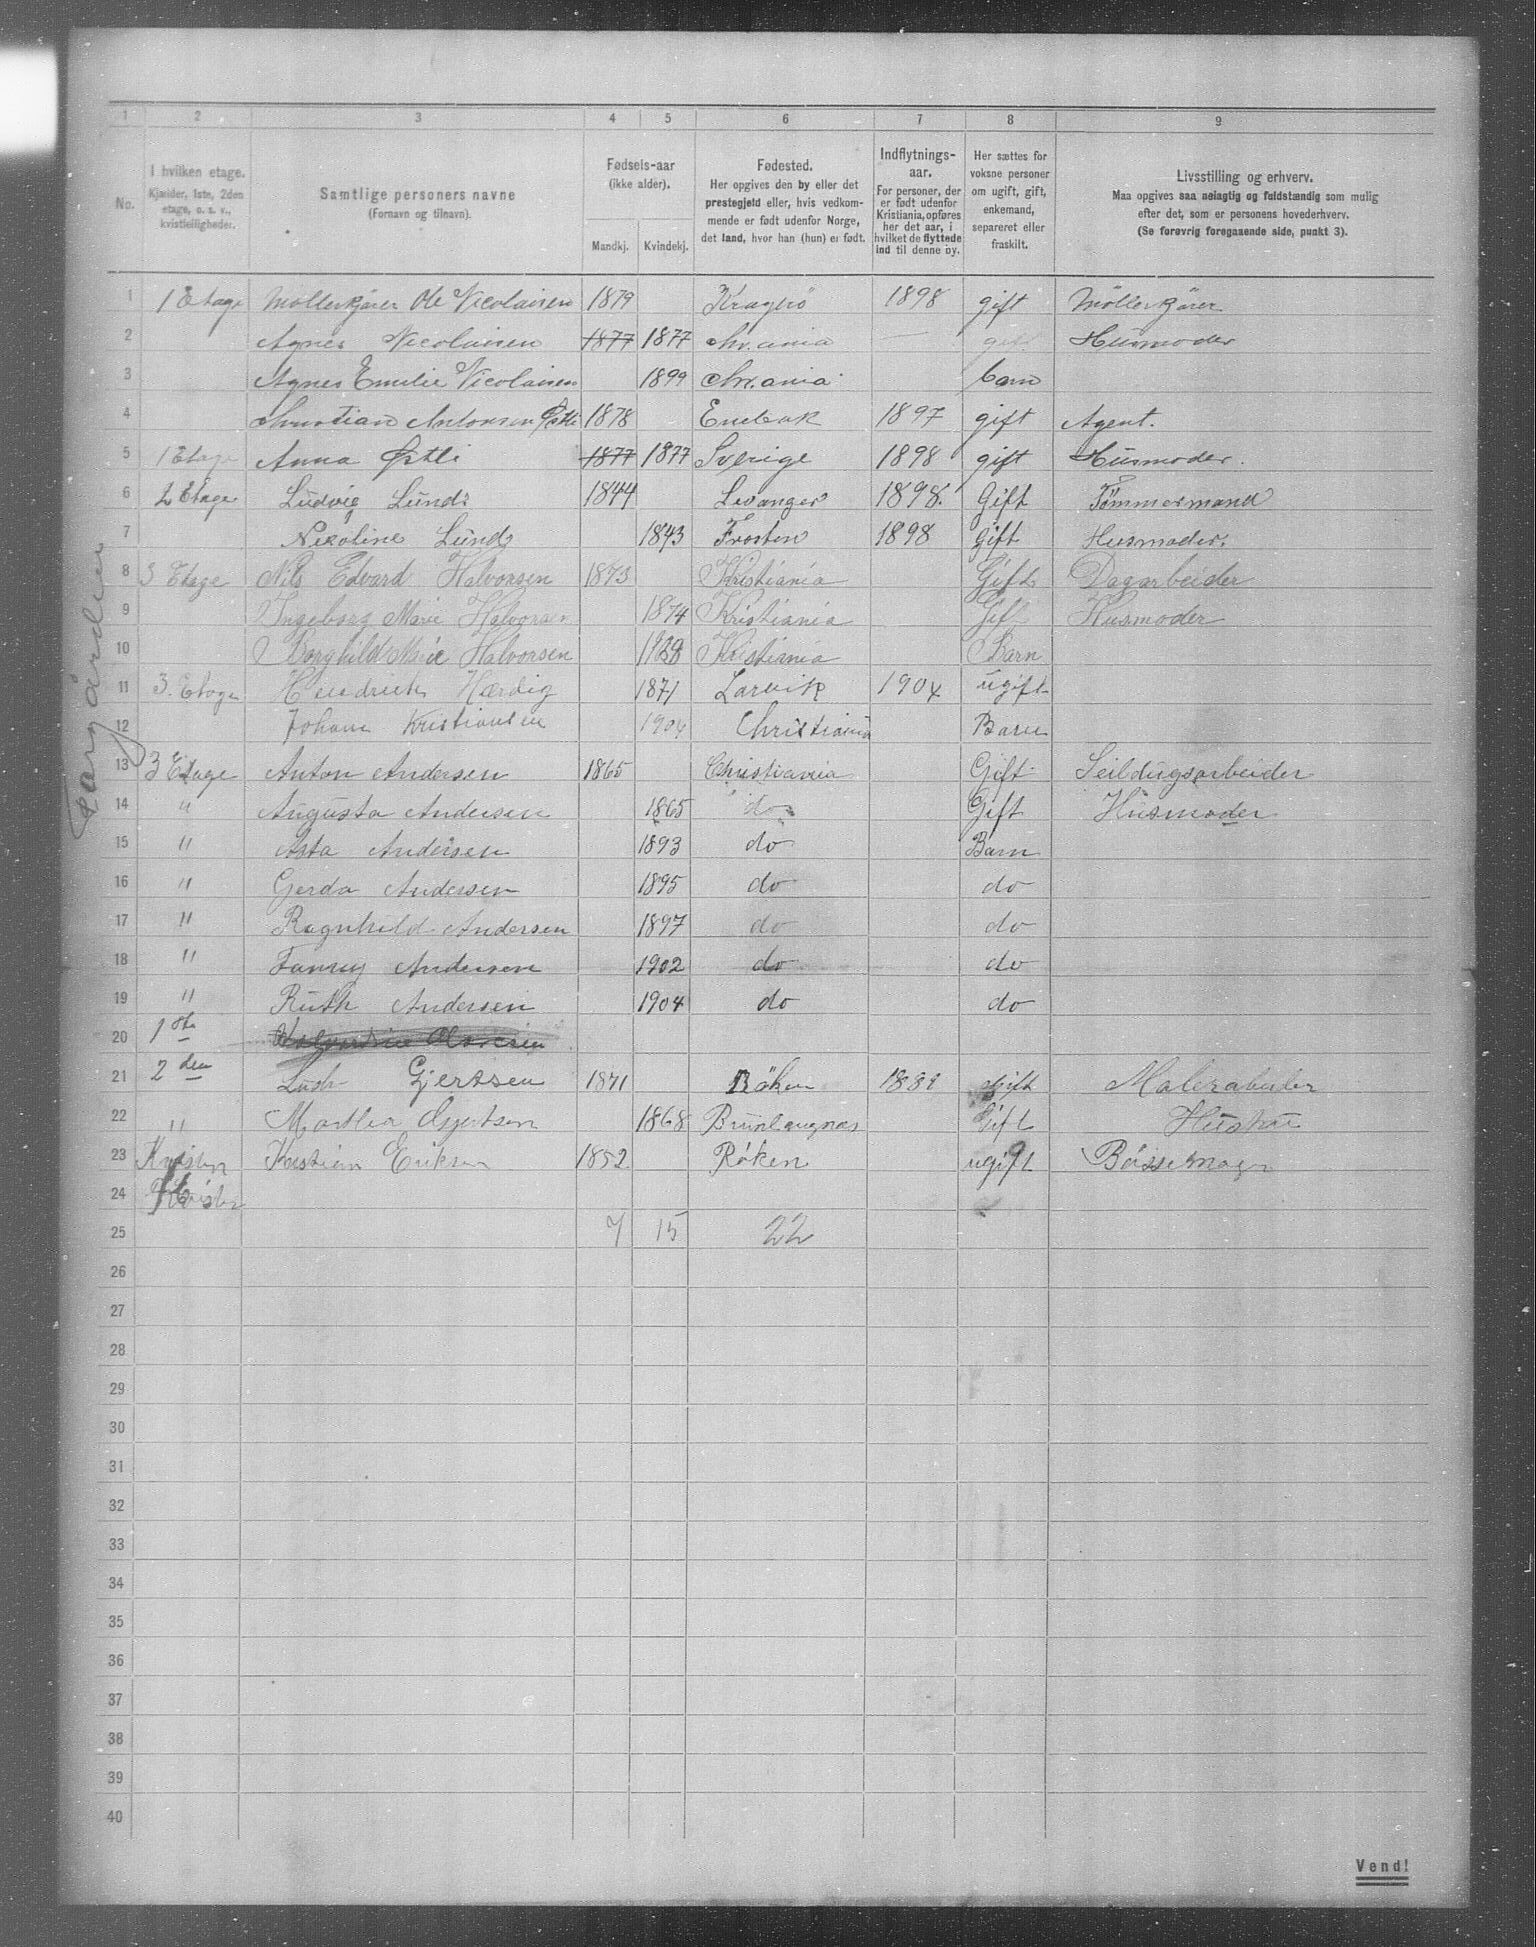 1 2 3 4 5 6 7 8 9
No.
I hvilken etage.
Kjælder, 1ste, 2den
etage, o. s. v.,
kvistleiligheder.
Samtlige personers navne
(Fornavn og tilnavn).
Fødsels-aar
(ikke alder).
Mandkj. Kvindekj.
Fødested.
Her opgives den by eller det
prestegjeld eller, hvis vedkom-
mende er født udenfor Norge,
det land, hvor han (hun) er født.
Indflytnings-
aar.
For personer, der
er født udenfor
Kristiania, opføres
her det aar, i
hvilket de flyttede
ind til denne by.
Her sættes for
voksne personer
om ugift, gift,
enkemand,
separeret eller
fraskilt.
Livsstilling og erhverv.
Maa opgives saa nøiagtig og fuldstændig som mulig
efter det, som er personens hovederhverv.
(Se forøvrig foregaaende side, punkt 3).
1 1 Etage Møllerkjører Ole Nicolaisen 1879 Kragerö 1898 gift Möllerkjører
2 Agnes Nicolaisen 1877 1877 Chr.ania gift Husmoder
3 Agnes Emilie Nicolaisen 1899 Chr.ania barn
4 Christian Antonsen Østli 1878 Enebak 1897 gift Agent.
5 1 Etage Anna Østli 1877 1877 Sverige 1898 gift Husmoder.
6 2 Etage Ludvig Lund 1844 Levanger 1898. Gift Tømmermand
7 Nicoline Lund 1843 Frosten 1898 Gift Husmoder.
8 3 Etage Nils Edvard Halvorsen 1873 Kristiania Gift Dagarbeider
9 Ingeborg Marie Halvorsen 1874 Kristiania Gift Husmoder
10 Borghild Marie Halvorsen Kristiania Barn
11 3. Etage Hærdig 1871 Larvik 1904 ugift
12 Kristiansen 1904 Christiania Barn
13 3 Etage Anton Andersen 1865 Christiania Gift Seildugsarbeider
14 " Augusta Andersen 1865 do Gift Husmoder
15 " Asta Andersen 1893 do Barn
16 " Gerda Andersen 1895 do do
17 " Ragnhild Andersen 1897 do do
18 " Fanny Andersen 1902 do do
19 " Ruth Andersen 1904 do do
20 1ste
21 2den Gjertsen 1871 Röken gift
22 " Martha Gjertsen 1868 Brunlaugnæs Gift Hustru
23 Kvisten Kristian Eriksen 1852 Røken ugift Bøssemager
24 Kvisten
25 7 15 22
26
27
28
29
30
31
32
33
34
35
36
37
38
39
40
Vend!